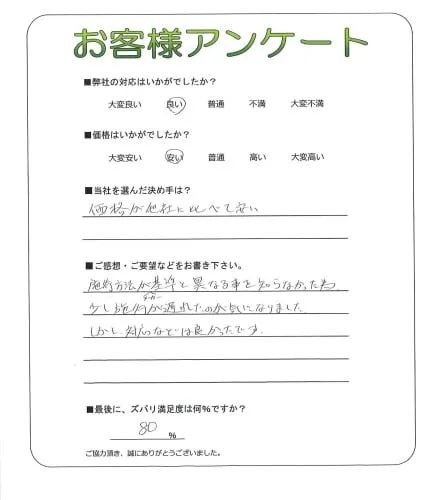 お客様アンケート
■弊社の対応はいかがでしたか？
大変良い 良い 普通 不満 大変不満
■価格はいかがでしたか？
大変安い 安い 普通 高い 大変高い
■当社を選んだ決め手は？
価格が他社に比べて安い
■ご感想・ご要望などをお書き下さい。
施行方法が基準と異なる事を知らなかった為、
少し施行が遅れたのが気になりました
しかし、対応などは良かったです。
■最後に、ズバリ満足度は何%ですか？
80 %
ご協力頂き、誠にありがとうございました。